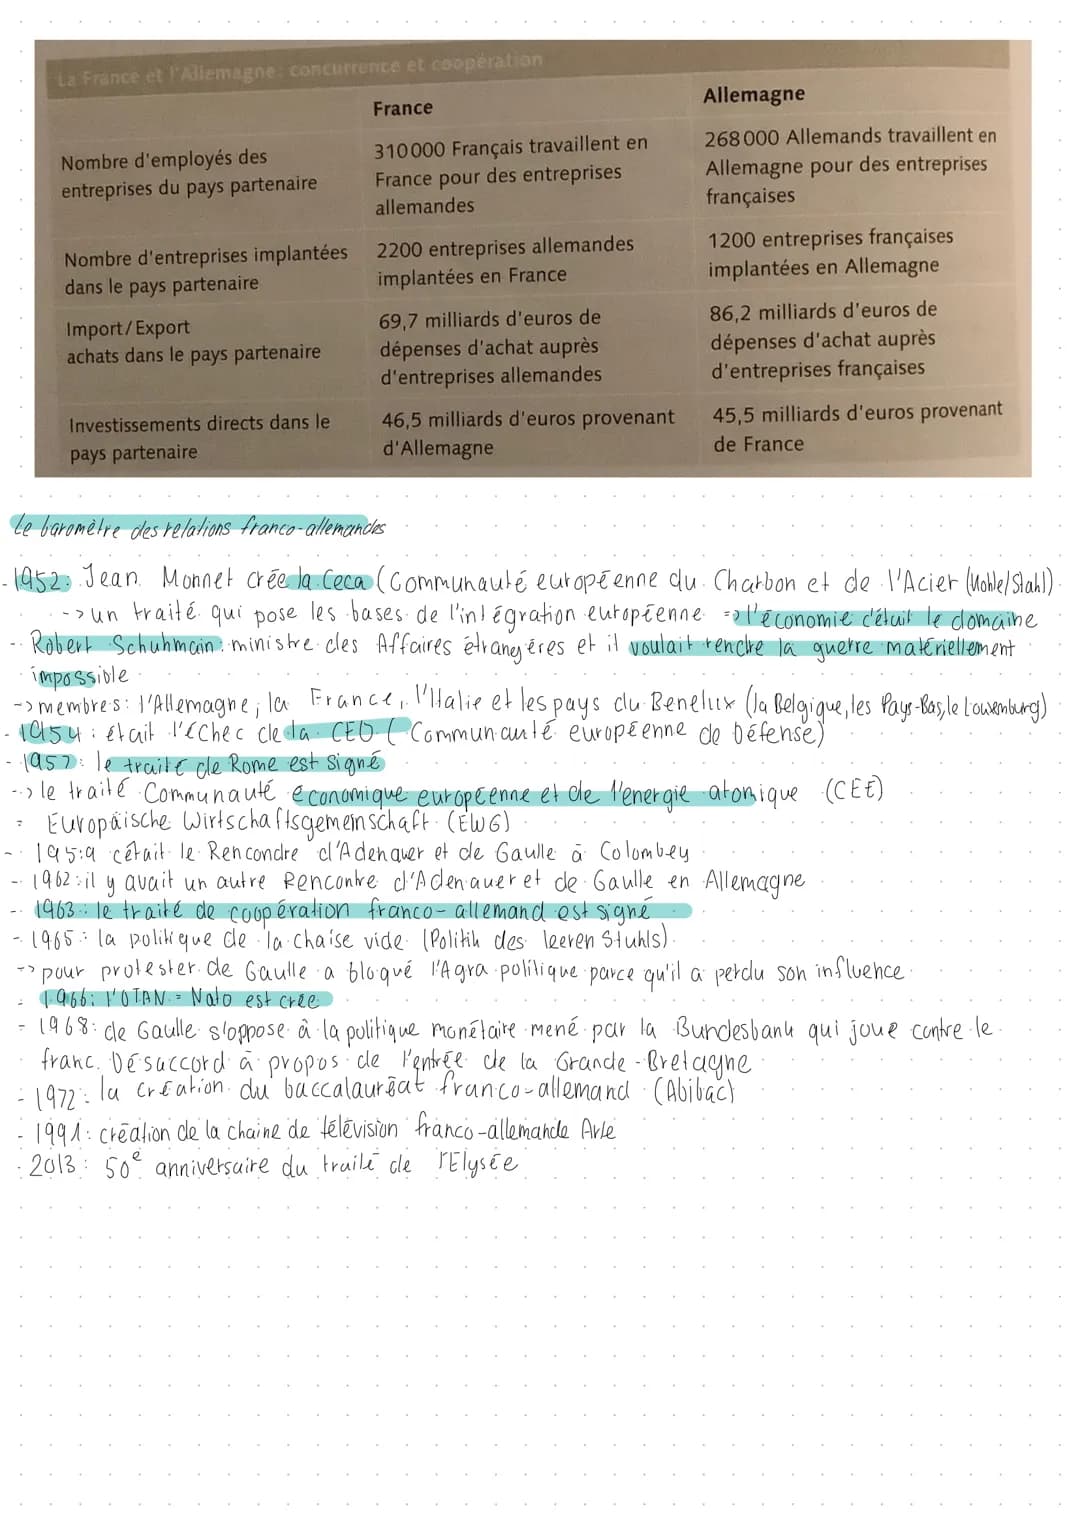 La France et l'Allemagne: concurrence et coopération
France
Allemagne
Nombre d'employés des
entreprises du pays partenaire
310000 Français travaillent en
France pour des entreprises
allemandes
268000 Allemands travaillent en
Allemagne pour des entreprises
françaises
Nombre d'entreprises implantées
dans le pays partenaire
2200 entreprises allemandes
implantées en France
1200 entreprises françaises
implantées en Allemagne
Import/Export
achats dans le pays partenaire
69,7 milliards d'euros de
dépenses d'achat auprès
d'entreprises allemandes
86,2 milliards d'euros de
dépenses d'achat auprès
d'entreprises françaises
Investissements directs dans le
pays partenaire
46,5 milliards d'euros provenant
d'Allemagne
45,5 milliards d'euros provenant
de France
Le baromètre des relations franco-allemandes
- 1952: Jean Monnet crée la Ceca (Communauté européenne du Charbon et de l'Acier (Kohle/Stahl)
-> un traité qui pose les bases de l'intégration européenne => l'économie c'était le domaine
- Robert Schuhmain: ministre des Affaires étrangères et il voulait rendre la guerre matériellement
impossible
-> membres: l'Allemagne, la France, l'Italie et les pays du Benelux (la Belgique, les Pays-Bas, le Louxemburg)
- 1954: était l'échec de la CED (Communauté européenne de Défense)
- 1957: le traité de Rome est signé
-> le traité Communauté économique européenne et de l'energie atomique (CEE)
= Europäische Wirtschaftsgemeinschaft (EWG)
- 1959 cétait le Rencondre d'Adenauer et de Gaulle à Colombey
- 1962: il y avait un autre Rencontre d'Adenauer et de Gaulle en Allemagne
- 1963: le traité de coopération franco-allemand est signé
- 1965: la politique de la chaise vide (Politik des leeren Stuhls)
-> pour protester de Gaulle a bloqué l'Agra politique parce qu'il a perdu son influence
- 1966: l'OTAN = Nato est crée
- 1968: de Gaulle s'oppose à la politique monétaire mené par la Bundesbank qui joue contre le
franc. Désaccord à propos de l'entrée de la Grande-Bretagne
- 1972: la création du baccalauréat franco-allemand (Abibac)
- 1991: création de la chaine de télévision franco-allemande Arte
- 2013: 50e anniversaire du traité de l'Elysée